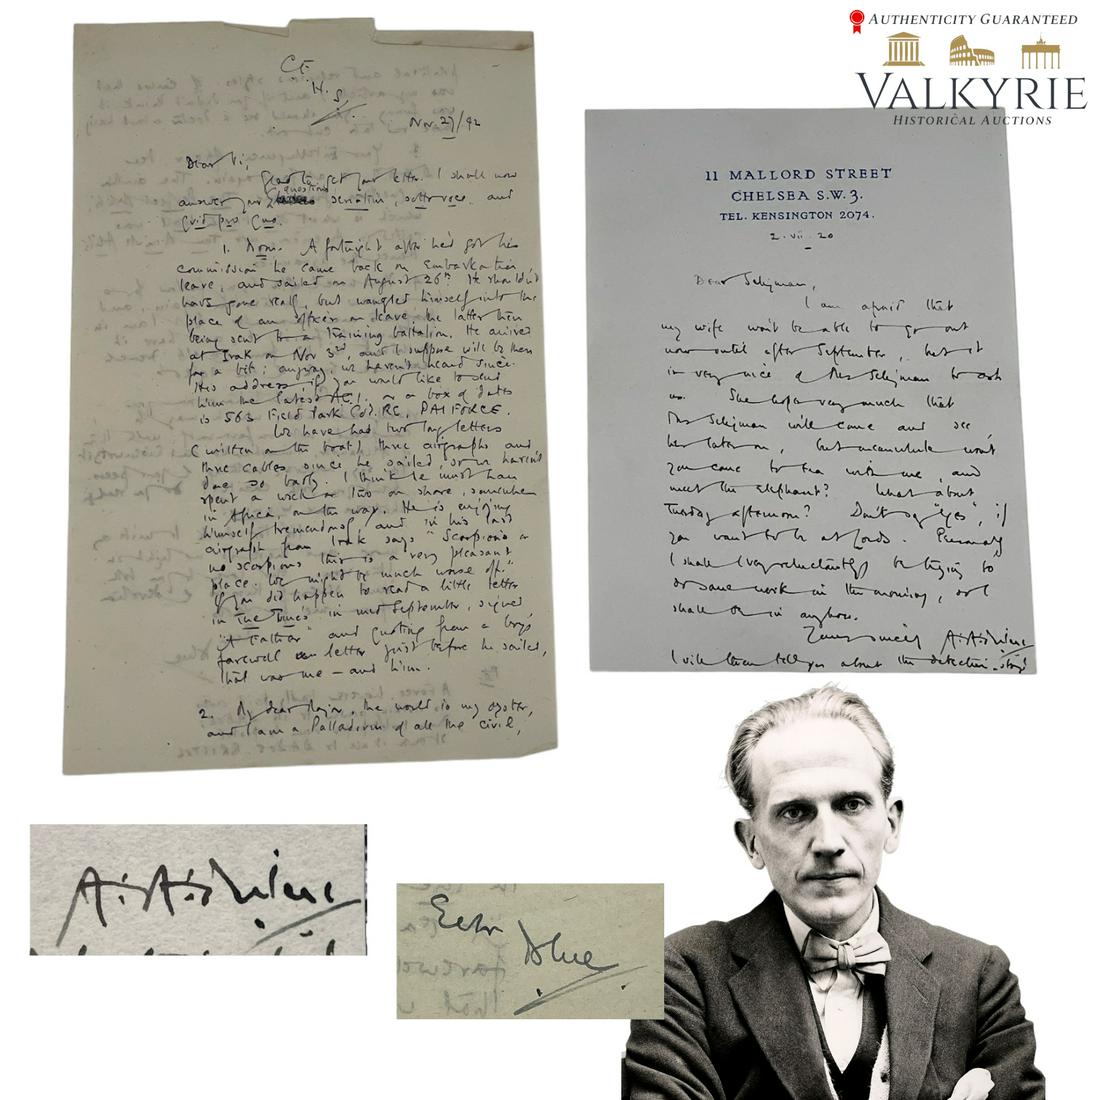 AUTHENTICITY GUARANTEED
VALKYRIE
HISTORICAL AUCTIONS
C.F.
H.S.
Nov. 27/42
Dear Vi,
Glad to get your letter. I shall now
answer your questions seriatim, and
Quid pro Quo.
1. Moon. A fortnight after he'd got his
commission he came back on Embarkation
leave, and sailed on August 26th. He shouldn't
have gone really, but wangled himself into the
place of an officer on leave, the latter then
being sent to a training battalion. He arrived
at Irak on Nov 3rd, and I suppose will be there
for a bit; anyway, we haven't heard since.
His address, if you would like to send
him the latest or a box of dates
is 563 Field Park Coy. R.E. PAI FORCE.
We have had two long letters
(written on the boat) three airgraphs and
three cables since he sailed, so we haven't
done so badly. I think he must have
spent a week or two on shore, somewhere
in Africa, on the way. He is enjoying
himself tremendously, and in his last
airgraph from Irak says "Scorpions or
no scorpions this is a very pleasant
place. We might be much worse off."
If you did happen to read a little letter
in The Times in mid September, signed
"A Father" and quoting from a boy's
farewell letter just before he sailed,
that was me – and him.
2. My dear Major, the world is my oyster,
and I am a Palladium of all the civil,
11 MALLORD STREET
CHELSEA S.W.3.
TEL. KENSINGTON 2074.
2.vii.20
Dear Selijman,
I am afraid that
my wife won't be able to go out
now until after September, but it
is very nice of Mrs Selijman to ask
us. She hopes very much that
Mrs Selijman will come and see
her later on, but meanwhile won't
you come to tea with me, and
meet the elephant? What about
Tuesday afternoon? Don't say "yes", if
you want to be at Lords. Personally
I shall (very reluctantly) be trying to
do some work in the morning, so I
shall be in anyhow.
Yours sincerely A.A. Milne
I will then tell you about the detective-story
A.A. Milne
Ever
Blue